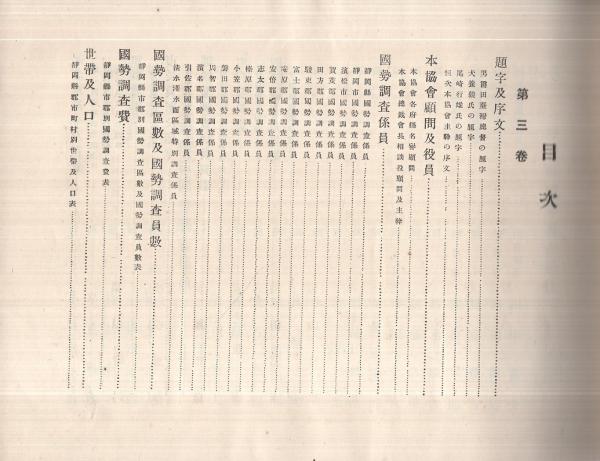 目次
第三卷
題字及序文
男爵田臺灣總督の題字
犬養毅氏の題字
尾崎行雄氏の題字
本協會主幹の序文
本協會顧問及役員
本協會各府縣名譽顧問
本協會總裁會長相談役顧問及主幹
國勢調查係員
靜岡縣國勢調查係員
靜岡市國勢調查係員
濱松市國勢調查係員
賀茂郡國勢調查係員
田方郡國勢調查係員
駿東郡國勢調查係員
富士郡國勢調查係員
庵原郡國勢調查係員
安倍郡國勢調查係員
志太郡國勢調查係員
榛原郡國勢調查係員
小笠郡國勢調查係員
磐田郡國勢調查係員
周智郡國勢調查係員
濱名郡國勢調查係員
引佐郡國勢調查係員
清水港水面區域特別調查係員
國勢調查區數及國勢調查員數
靜岡縣市郡別國勢調查區數及國勢調查員數表
國勢調查費
靜岡縣市郡別國勢調查費表
世帶及人口
靜岡縣郡市町村別世帶及人口表